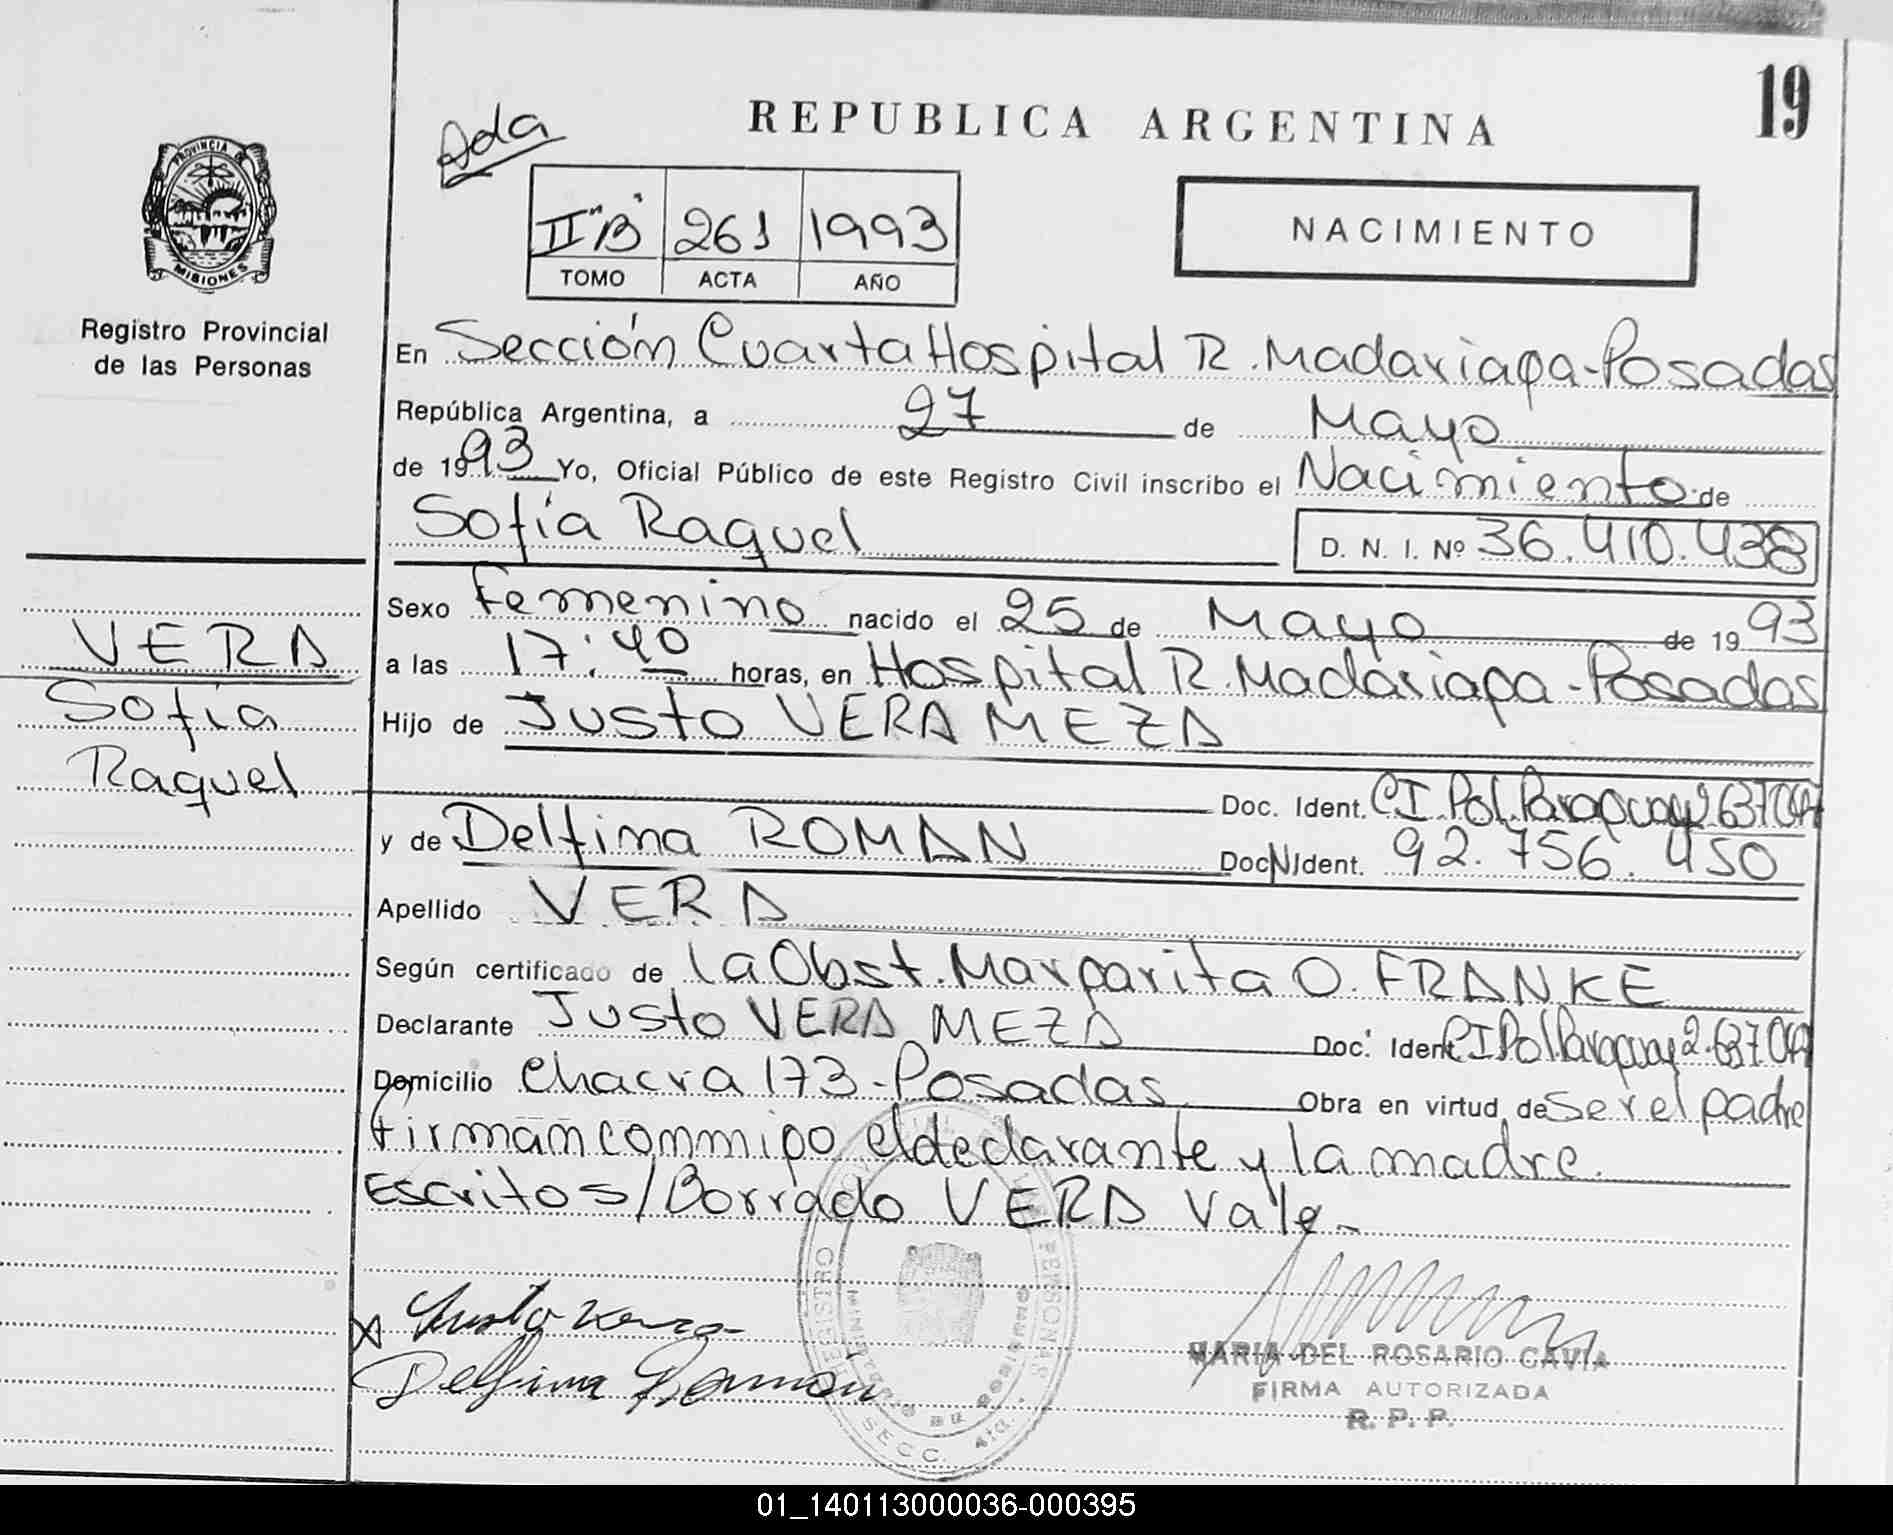 19
REPUBLICA ARGENTINA
Ada
PROVINCIA DE
MISIONES
II "B" 261 1993
TOMO ACTA AÑO
NACIMIENTO
Registro Provincial
de las Personas
En Sección Cuarta Hospital R. Madariaga - Posadas
República Argentina, a 27 de Mayo
de 1993 Yo, Oficial Público de este Registro Civil inscribo el Nacimiento de
Sofía Raquel D. N. I. Nº 36.410.438
Sexo Femenino nacido el 25 de Mayo de 1993
VERA
a las 17:40 horas, en Hospital R. Madariaga - Posadas
Sofia
Hijo de Justo VERA MEZA
Raquel
Doc. Ident. CI Pol. Paraguay
y de Delfina ROMAN Doc N Ident. 92.756.450
Apellido VERA
Según certificado de la Obst. Margarita O. FRANKE
Declarante Justo VERA MEZA Doc. Ident CI Pol. Paraguay
Domicilio Chacra 173 - Posadas Obra en virtud de Ser el padre
firman conmigo el declarante y la madre.
Escrito s/Borrado VERA Vale -
Justo Vera
Delfina Roman
REGISTRO PERSONAS
SECC. 4ta.
MARIA DEL ROSARIO CAVIA
FIRMA AUTORIZADA
R. P. P.
01_140113000036-000395